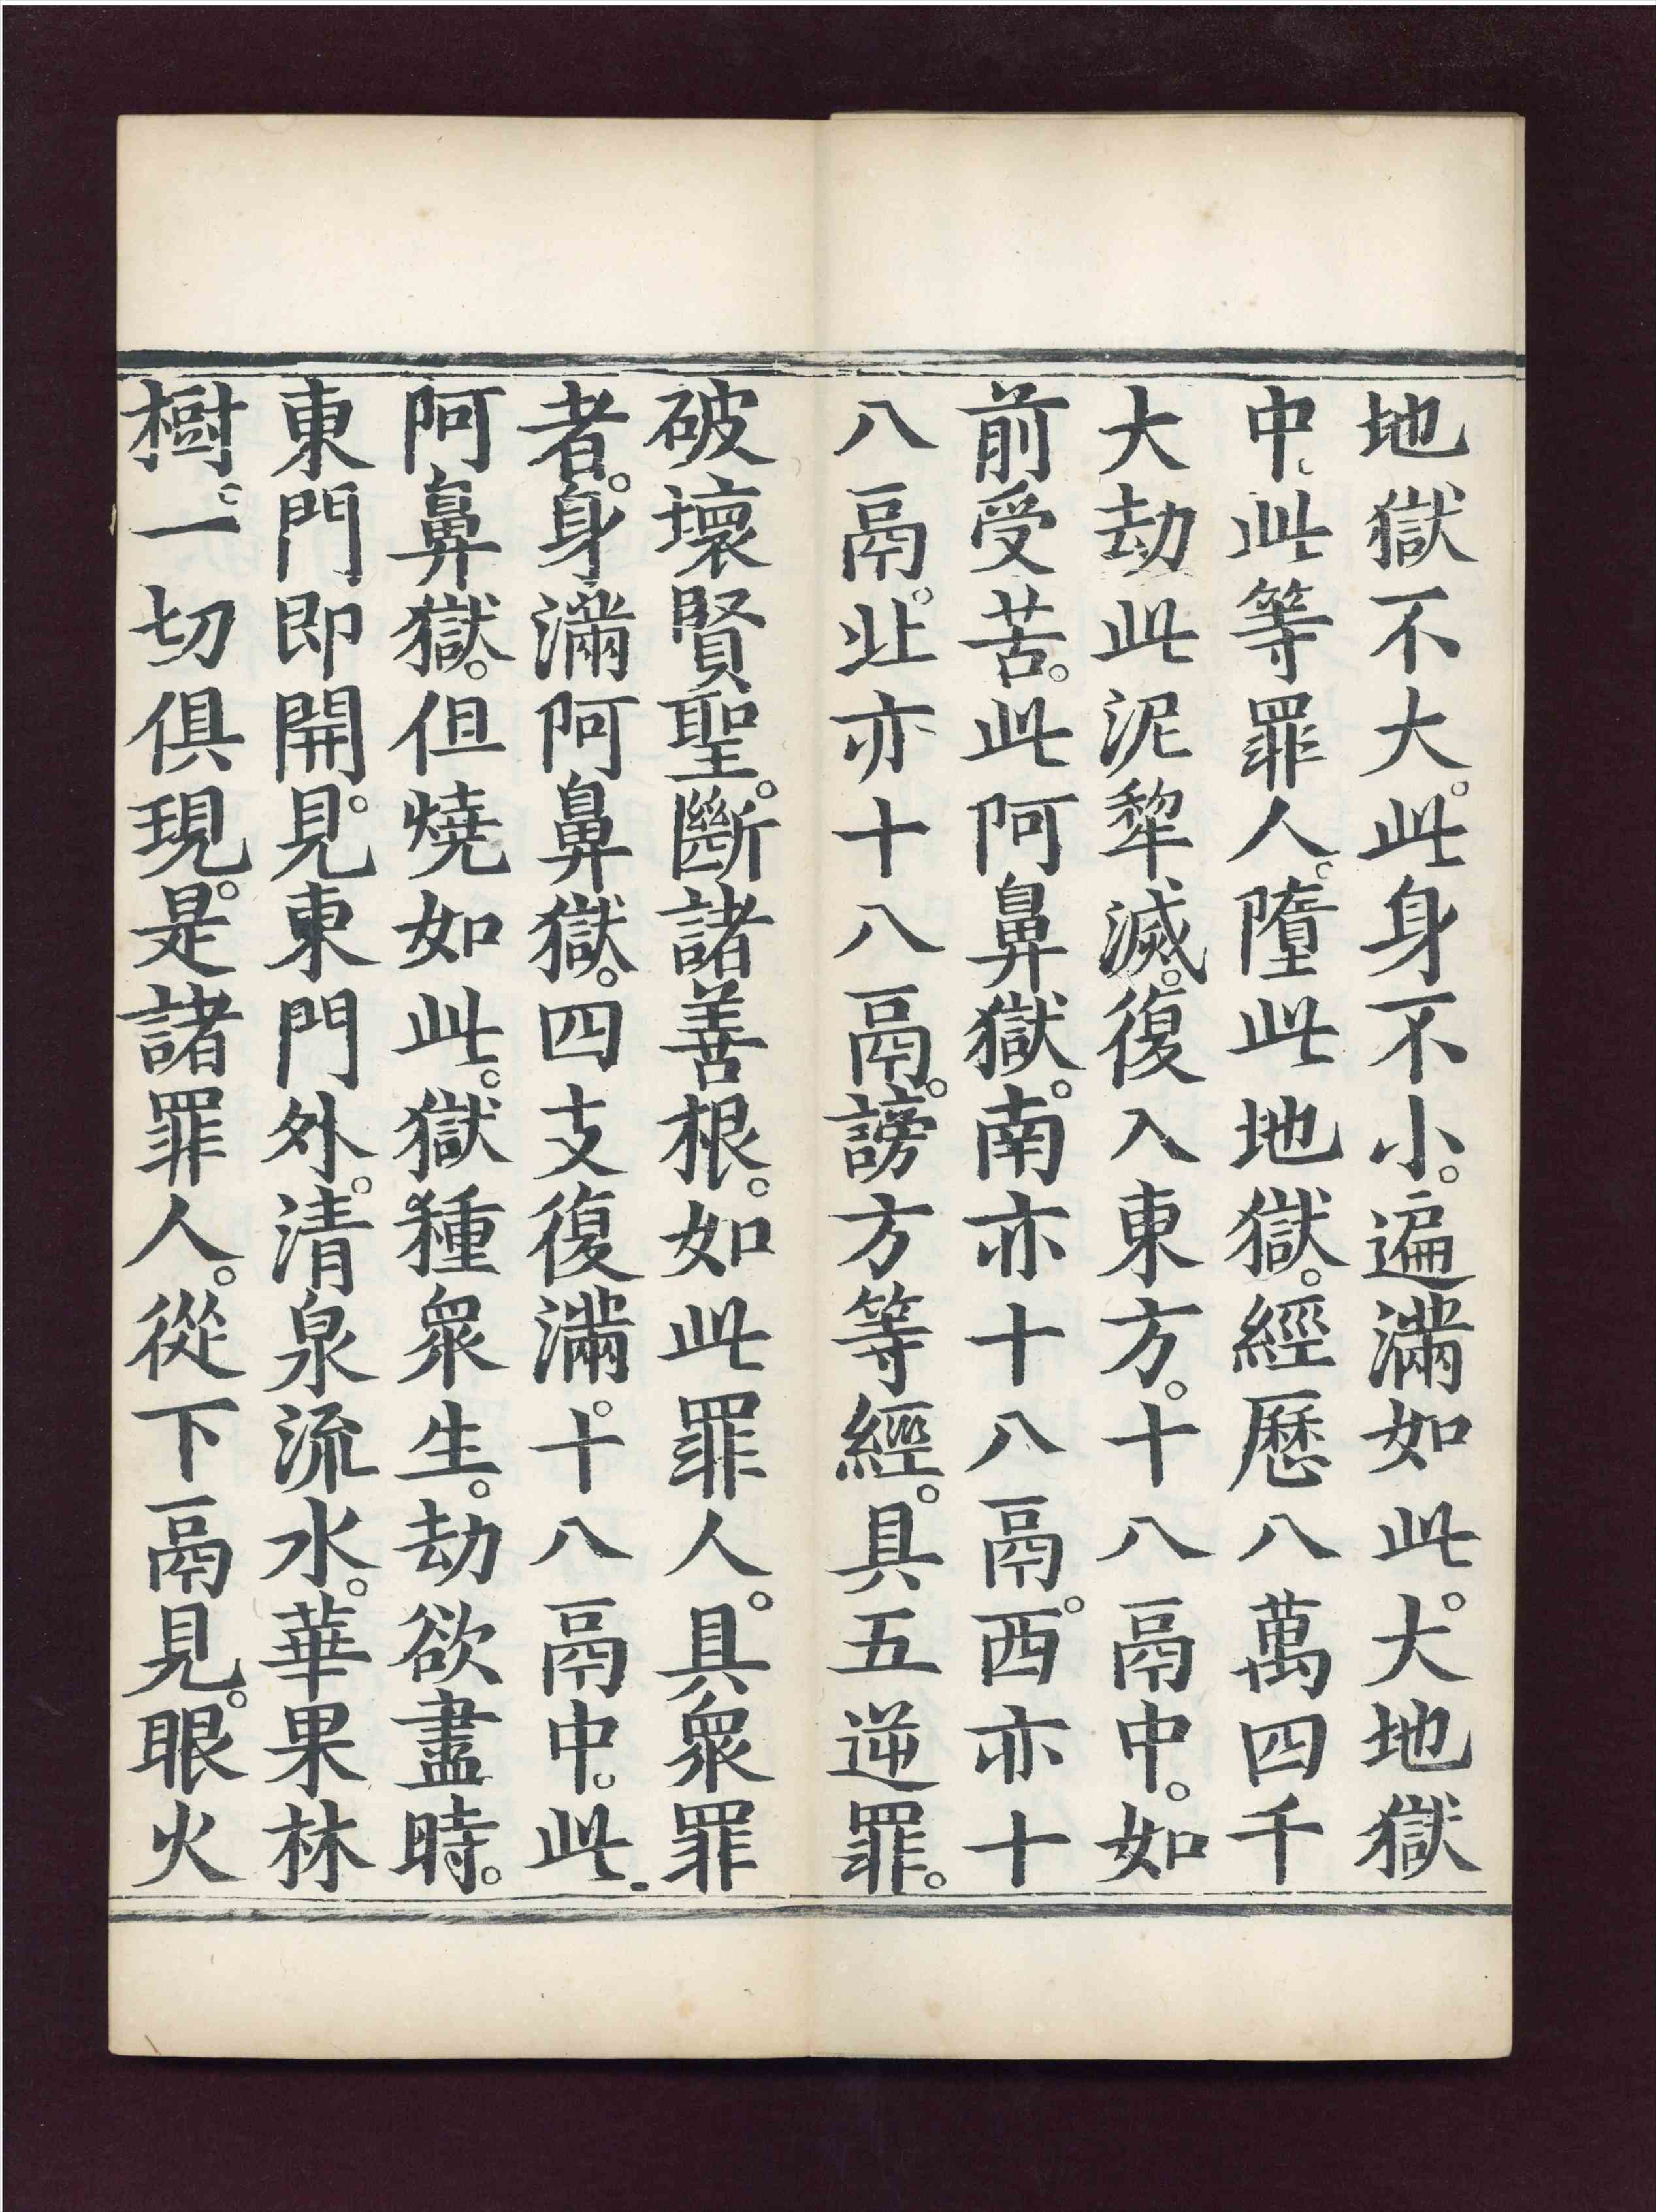 地獄不大。此身不小。遍滿如此。大地獄
中。此等罪人。墮此地獄。經歷八萬四千
大劫此泥犂滅。復入東方。十八鬲中。如
前受苦。此阿鼻獄。南亦十八鬲。西亦十
八鬲。北亦十八鬲。謗方等經。具五逆罪。
破壞賢聖。斷諸善根。如此罪人。具衆罪
者。身滿阿鼻獄。四支復滿。十八鬲中。此
阿鼻獄。但燒如此。獄種衆生。劫欲盡時。
東門即開。見東門外。清泉流水。華果林
樹。一切俱現。是諸罪人。從下鬲見。眼火